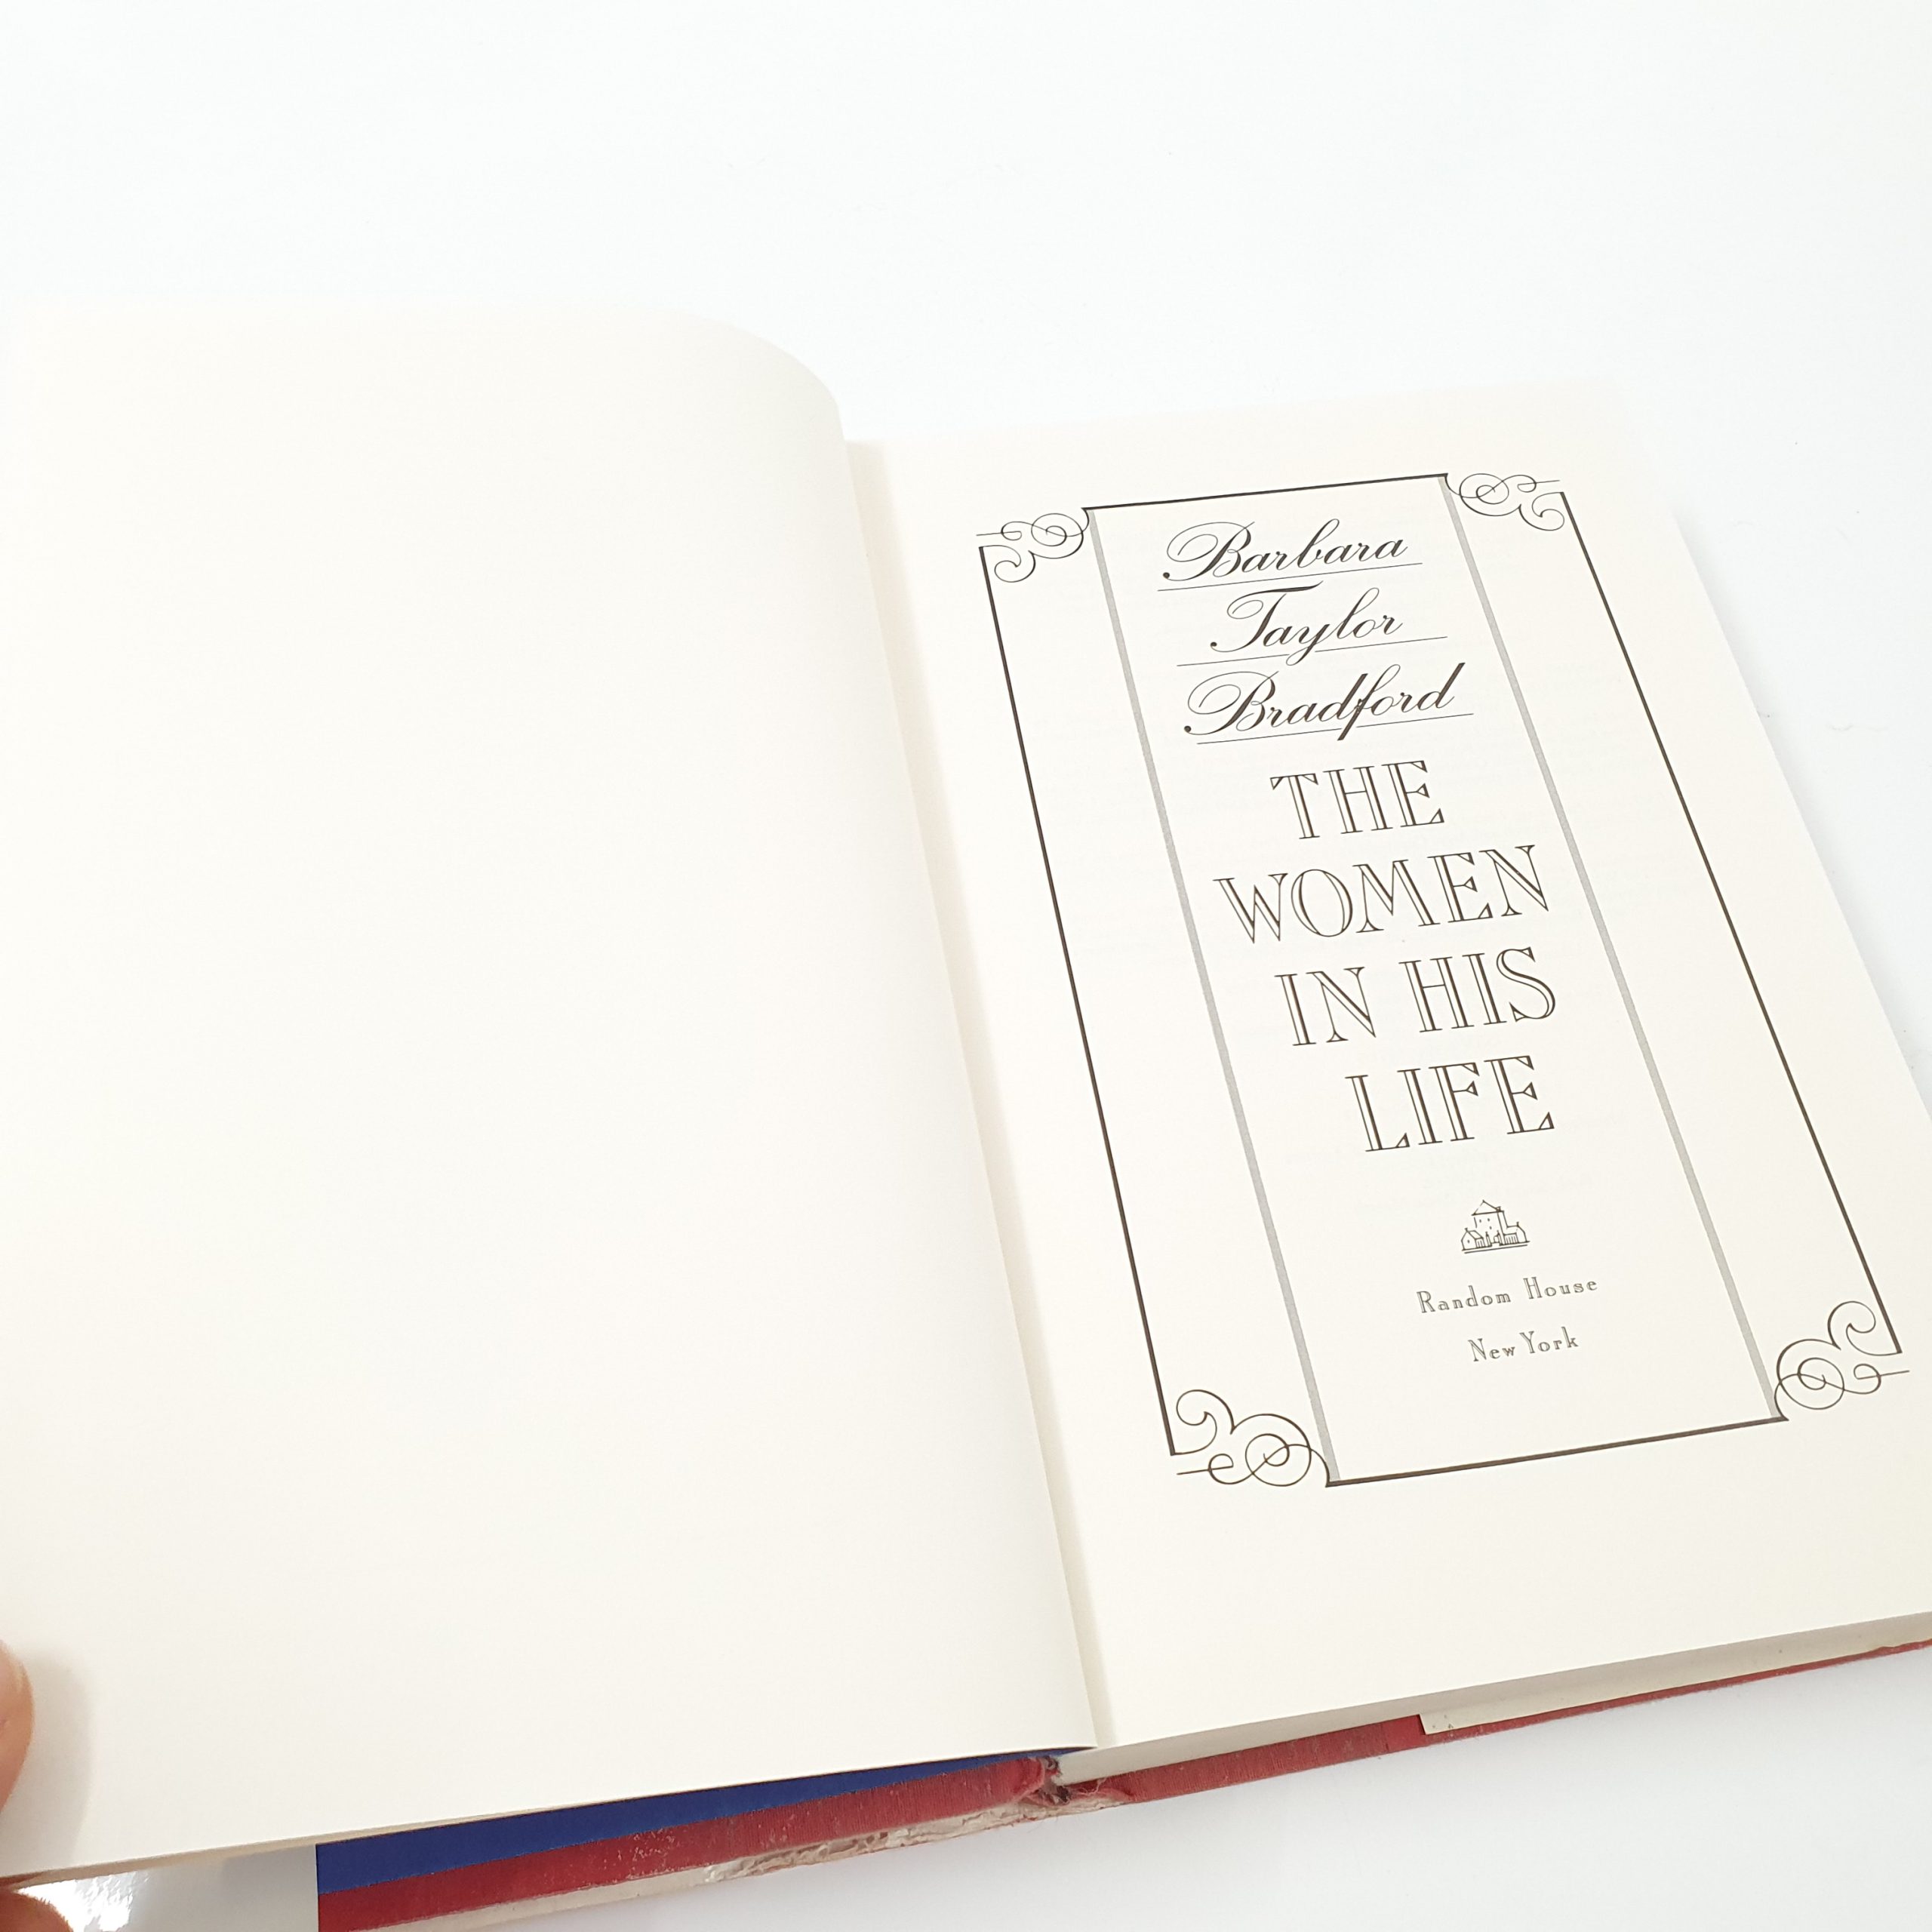 Barbara
Taylor
Bradford
THE
WOMEN
IN HIS
LIFE
Random House
New York